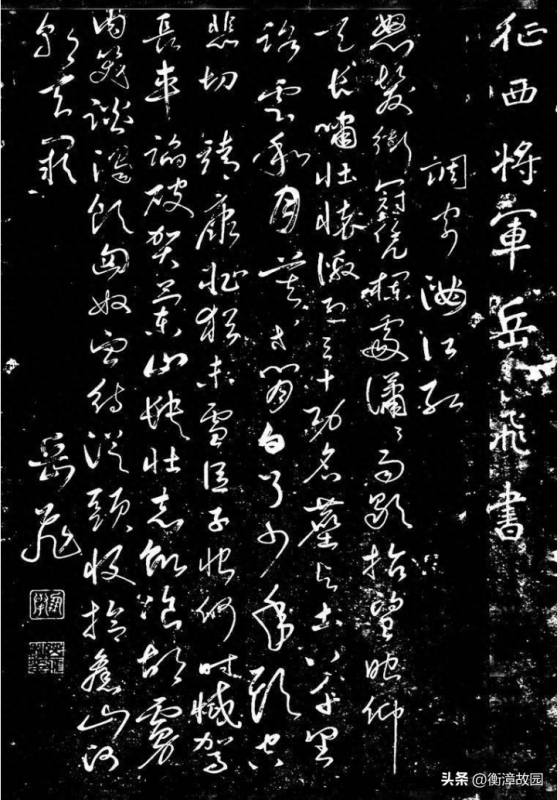 征西將軍岳飛書
調寄滿江紅
怒髮衝冠凭欄處瀟瀟雨歇抬望眼仰
天長嘯壯懷激烈三十功名塵与土八千里
路雲和月莫等閒白了少年頭空
悲切靖康恥猶未雪臣子恨何時滅駕
長車踏破賀蘭山缺壯志飢飡胡虜
肉笑談渴飲匈奴血待從頭收拾舊山河
朝天闕
岳飛
头条 @衡漳故园